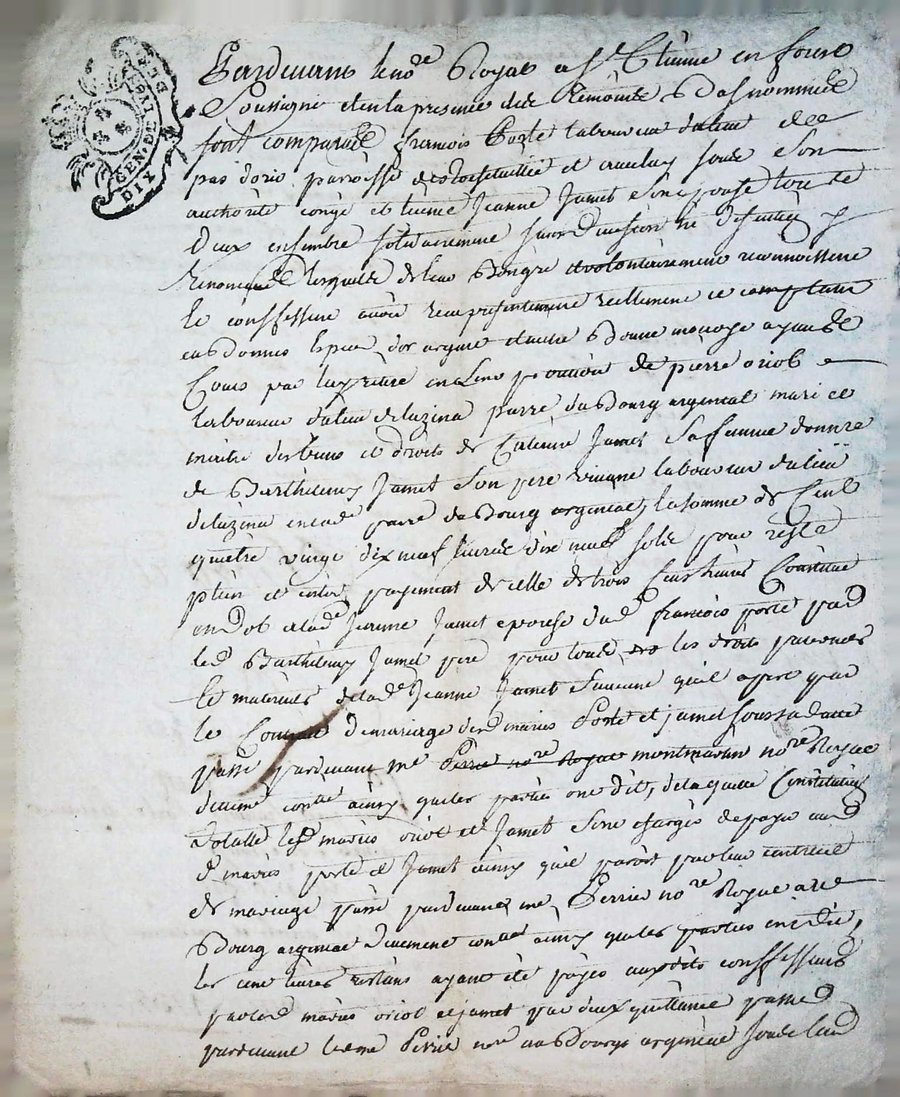 GEN. DE
DIX
Pardevant le no.re Royal a S.t Etienne en forest
Soussigné et en la presence des temoins Bas nommés
font comparus françois Porte laboureur du lieu de
pas dorio paroisse et Jouste Son
authorité congé et licence Jeanne Jamet Son epouse tous
deux ensemble solidairement sans division ni discution
Renomcant lesquels de leur Bongré et volontairement reconnoissent
et confessent avoir reçu presentement réellement et comptant
en Bonnes Espece d'or argent et autre Bonne monoye ayant
Cours par en cine de pierre oriol
laboureur du lieu de luzina parre. du Bourg argental mari et
maitre des biens et droits de Catherine Jamet Sa femme
de Barthelemy Jamet Son pere vivant laboureur du lieu
deluzina en lad.e parre. du Bourg argental, la somme de Cent
quatre vingt dix neuf livres dix neuf sols pour reste
plein et entier payement de celle de trois Cens livres Constitué
en Dot a lad.e Jeanne Jamet epouse dud. françois porte par
led. Barthelemy Jamet pere pour tous les droits paternels
et maternels de lad.e Jeanne Jamet Suivant qu'il apert par
le Contract de mariage desd. mariés Porte et jamet sous sa datte
passé pardevant me Perrie no.re Royal montmartin no.re Royal
ainsy que les parties ont dit, de laquelle Constitution
totalle lesd. mariés oriol et Jamet Sont chargés de payer aux
d. mariés porte et Jamet ainsy qu'il paroit par leur contract
de mariage passé pardevant me Perrie no.re Royal
Bourg argental ainsy que les parties ont dit,
les cent livres restans ayant été payés auxdits confesseurs
par lesd. mariés oriol et jamet par deux quittances passées
pardevant led. me Perrie no.re au Bourg argental sous leurs